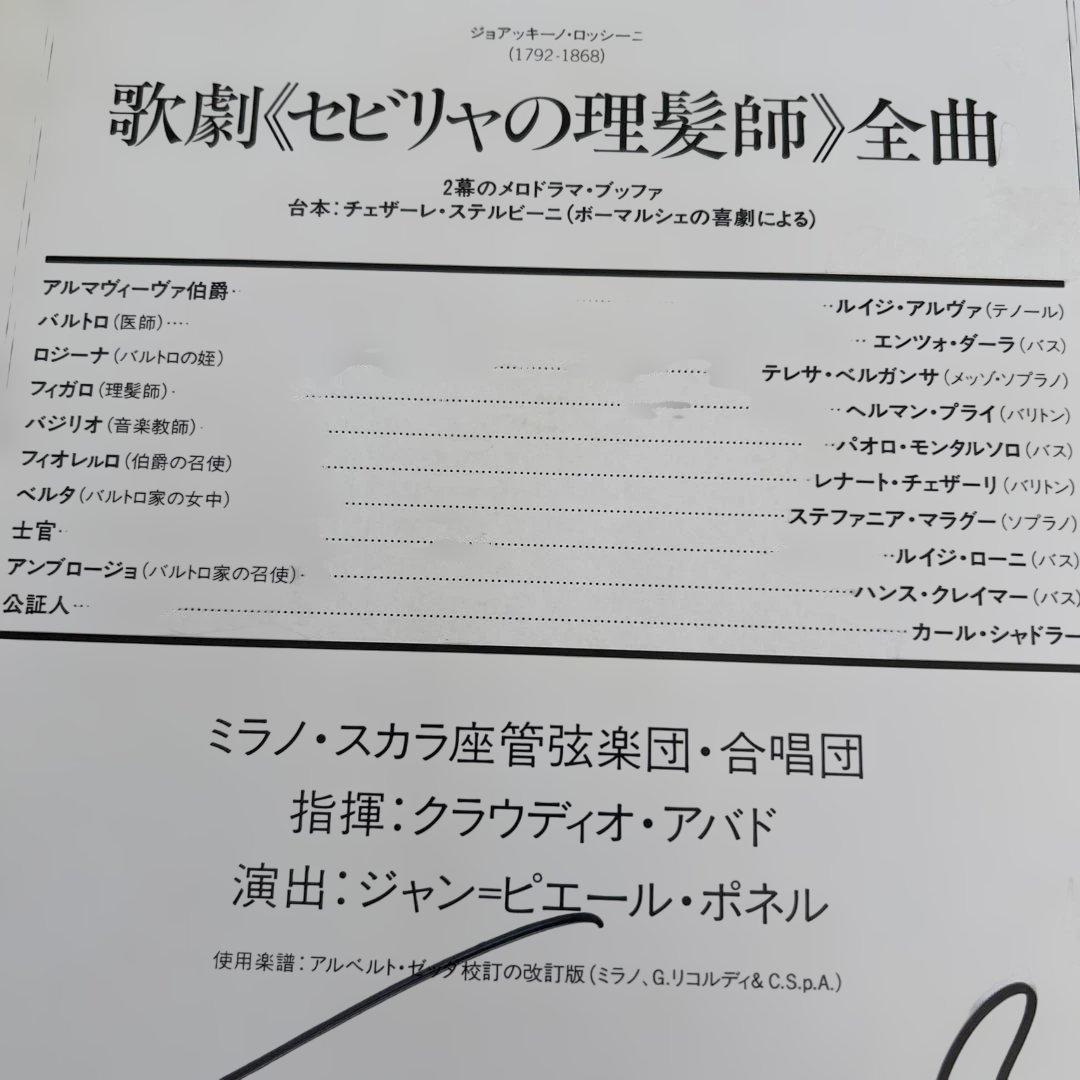 ジョアッキーノ・ロッシーニ
(1792-1868)
歌劇《セビリャの理髪師》全曲
2幕のメロドラマ・ブッファ
台本：チェザーレ・ステルビーニ（ボーマルシェの喜劇による）
アルマヴィーヴァ伯爵 ルイジ・アルヴァ（テノール）
バルトロ（医師） エンツォ・ダーラ（バス）
ロジーナ（バルトロの姪） テレサ・ベルガンサ（メッゾ・ソプラノ）
フィガロ（理髪師） ヘルマン・プライ（バリトン）
バジリオ（音楽教師） パオロ・モンタルソロ（バス）
フィオレルロ（伯爵の召使） レナート・チェザーリ（バリトン）
ベルタ（バルトロ家の女中） ステファニア・マラグー（ソプラノ）
士官 ルイジ・ローニ（バス）
アンブロージョ（バルトロ家の召使） ハンス・クレイマー（バス）
公証人 カール・シャドラー
ミラノ・スカラ座管弦楽団・合唱団
指揮：クラウディオ・アバド
演出：ジャン=ピエール・ポネル
使用楽譜：アルベルト・ゼッダ校訂の改訂版（ミラノ、G.リコルディ& C.S.p.A.）